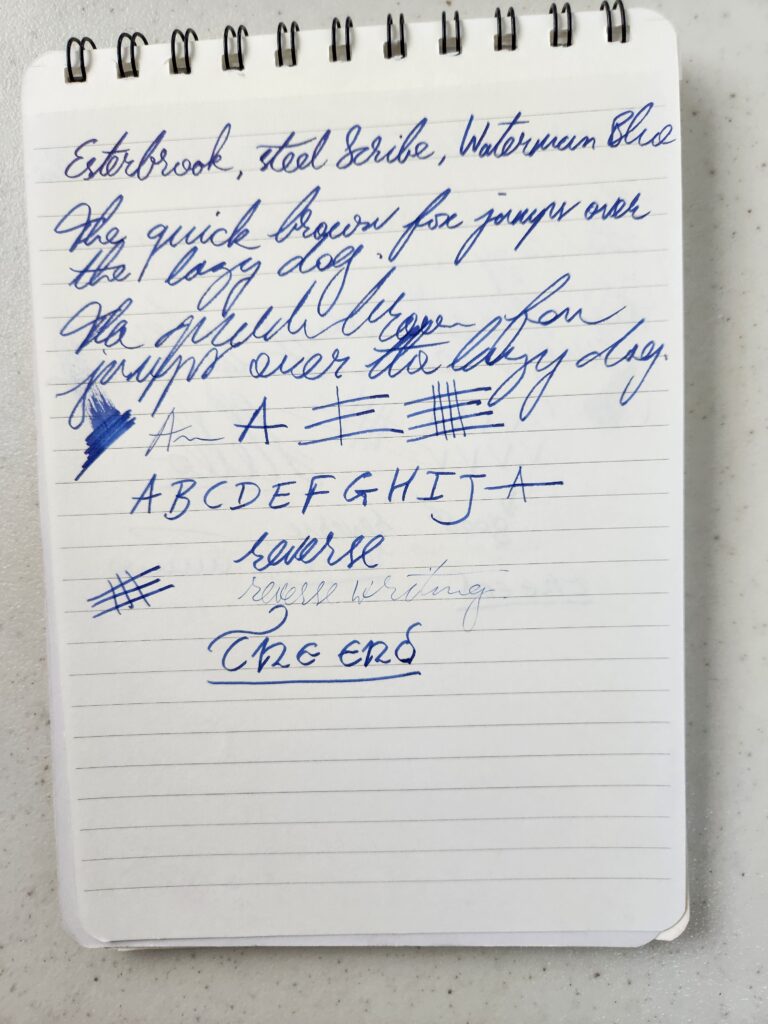 Esterbrook, steel Scribe, Waterman Blue
The quick brown fox jumps over
the lazy dog.
The quick brown fox
jumps over the lazy dog.
A A
A B C D E F G H I J A
reverse
reverse writing
The end